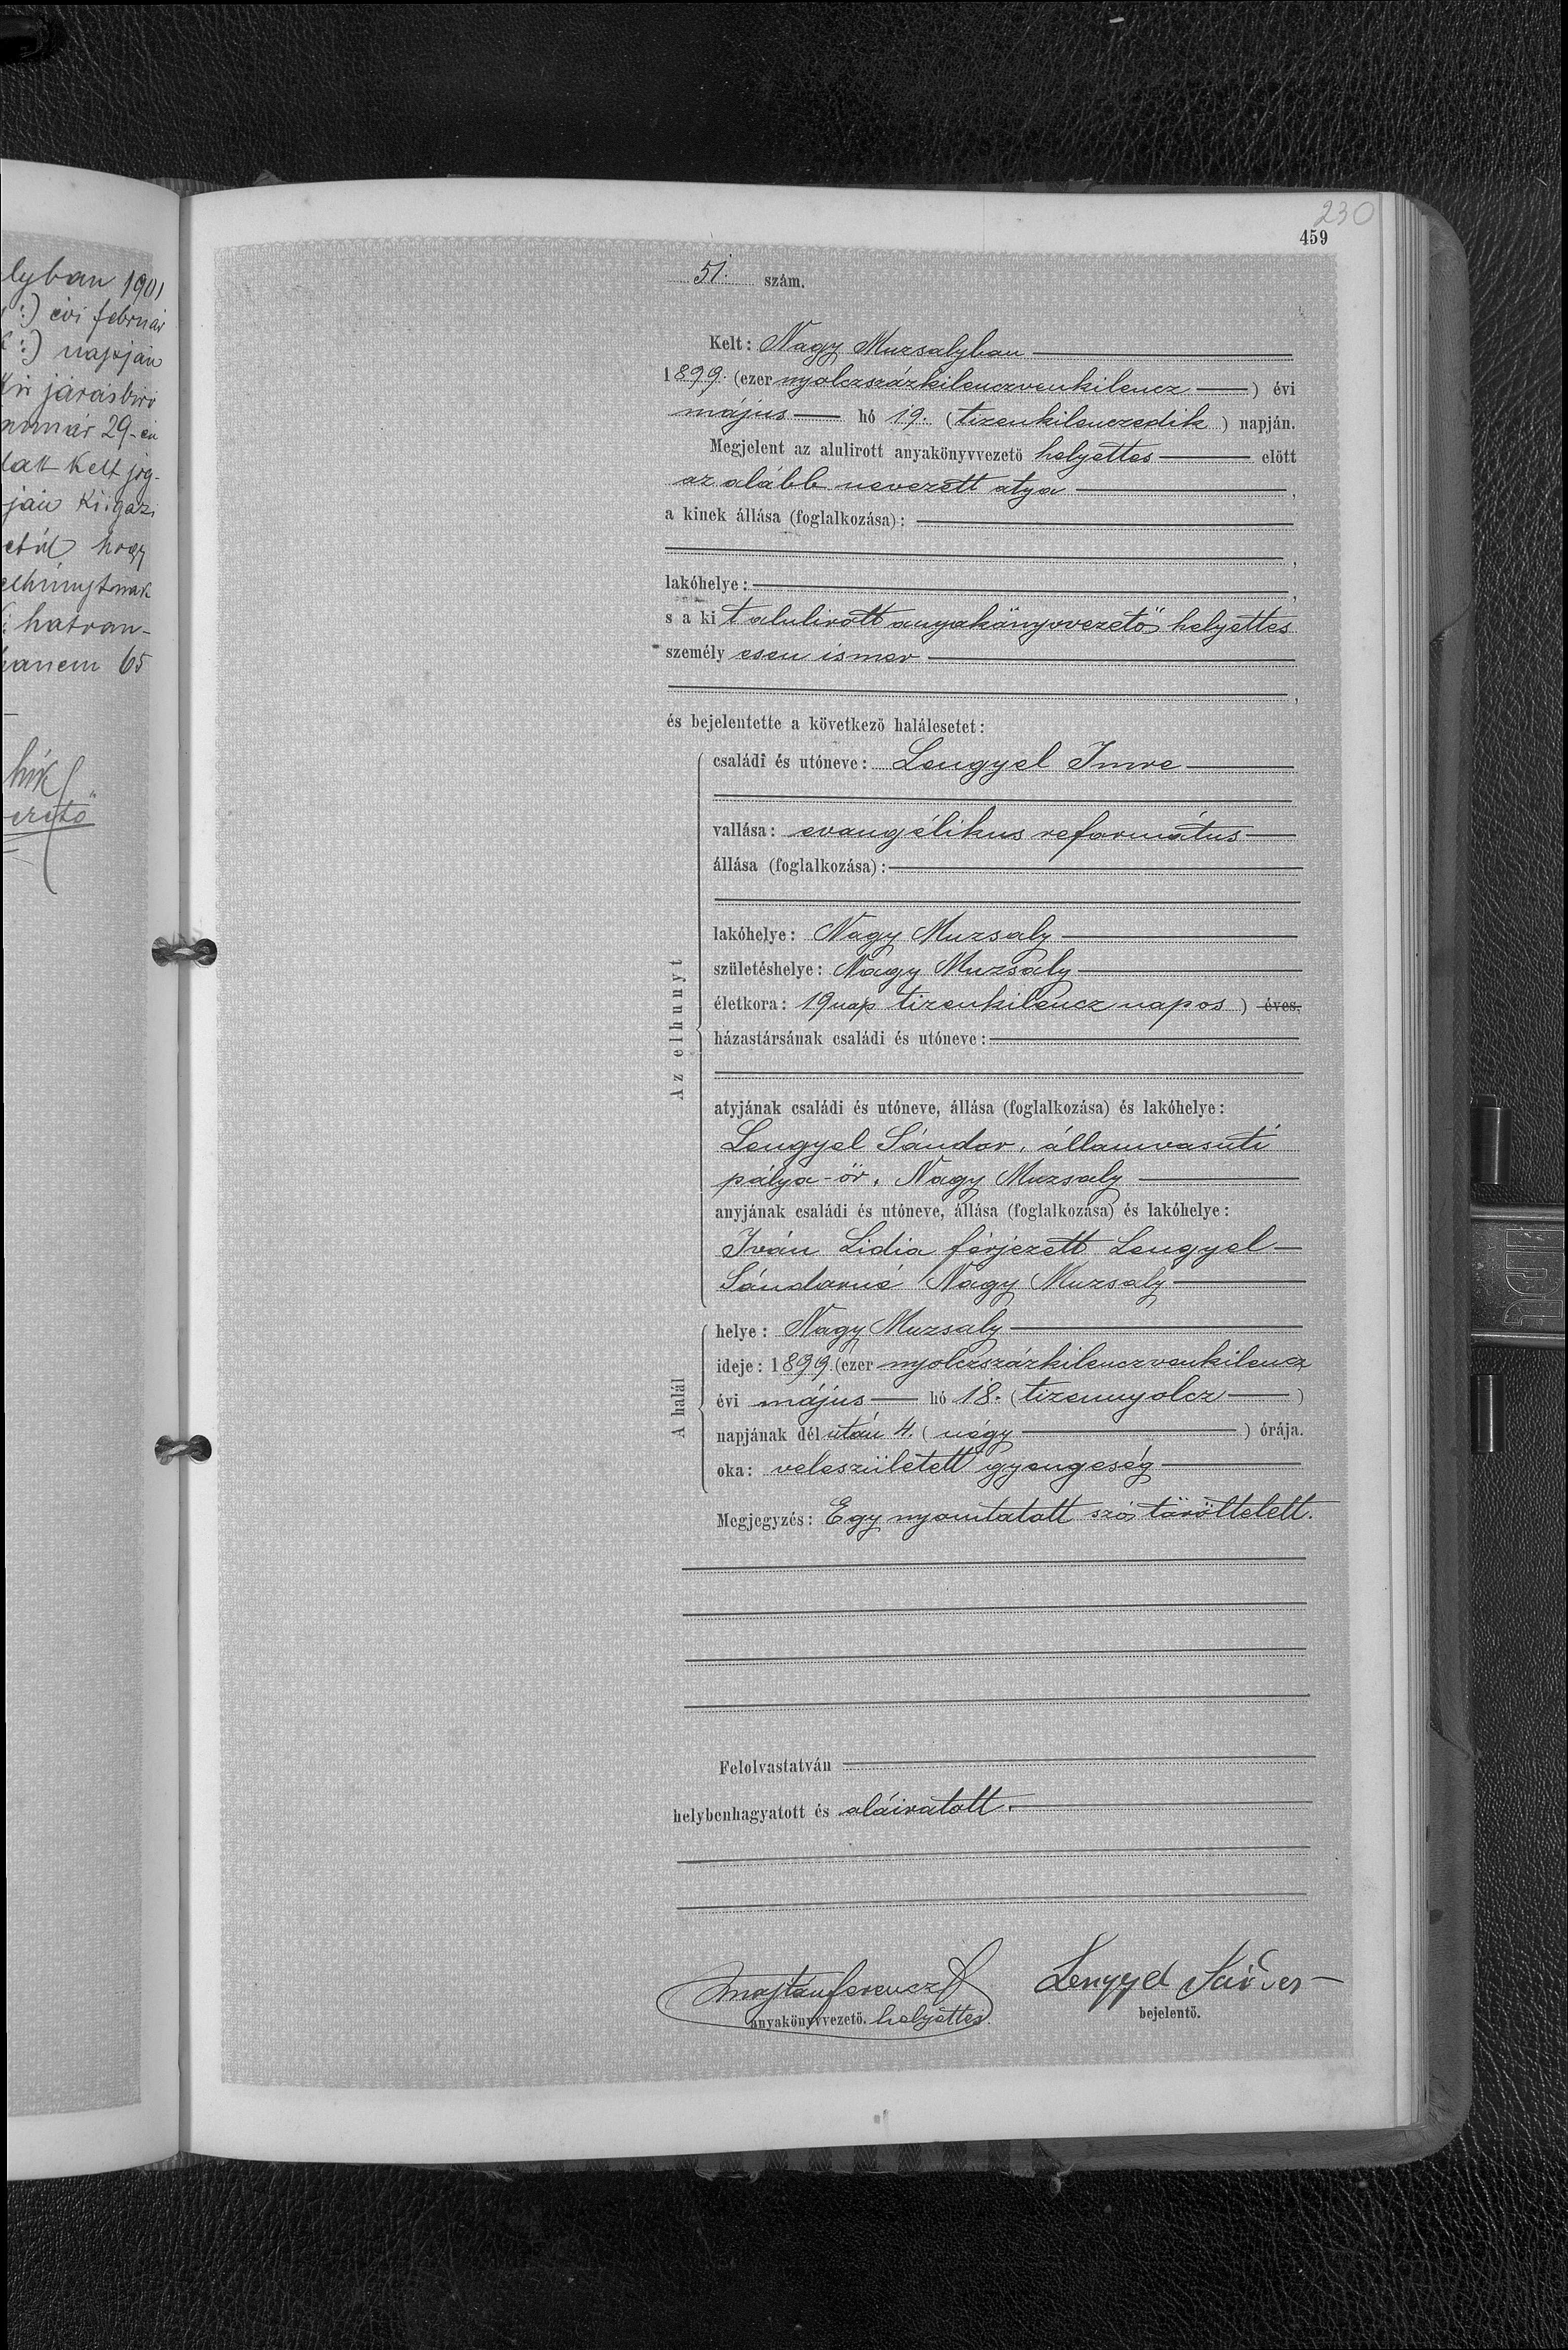 lyban 1901
:) évi február
:) napján
járásbiró
január 29-én
latt kelt jog-
ján kiigazi
hogy
elhunytnak
hatvan-
hanem 65
230
459
51. szám.
Kelt: Nagy Muzsalyban
1899. (ezer nyolczszázkilenczvenkilencz) évi
május hó 19. (tizenkilenczedik) napján.
Megjelent az alulirott anyakönyvvezető helyettes előtt
az alább nevezett atya,
a kinek állása (foglalkozása):
,
lakóhelye: ,
s a ki t alulirott anyakönyvvezető helyettes
személy esen ismer
,
és bejelentette a következő halálesetet:
Az elhunyt
családi és utóneve: Lengyel Imre
vallása: evangélikus református
állása (foglalkozása):
lakóhelye: Nagy Muzsaly
születéshelye: Nagy Muzsaly
életkora: 19 nap tizenkilencz napos) éves.
házastársának családi és utóneve:
atyjának családi és utóneve, állása (foglalkozása) és lakóhelye:
Lengyel Sándor, államvasuti
pálya-őr, Nagy Muzsaly
anyjának családi és utóneve, állása (foglalkozása) és lakóhelye:
Iván Lidia férjezett Lengyel
Sándorné Nagy Muzsaly
A halál
helye: Nagy Muzsaly
ideje: 1899. (ezer nyolczszázkilenczvenkilencz
évi május hó 18. (tizennyolcz)
napjának dél után 4. (négy) órája.
oka: veleszületett gyengeség
Megjegyzés: Egy nyomtatott szó töröltetett.
Felolvastatván
helybenhagyatott és aláiratott.
Majtán Ferencz Lengyel Sándor
anyakönyvvezető. helyettes. bejelentő.